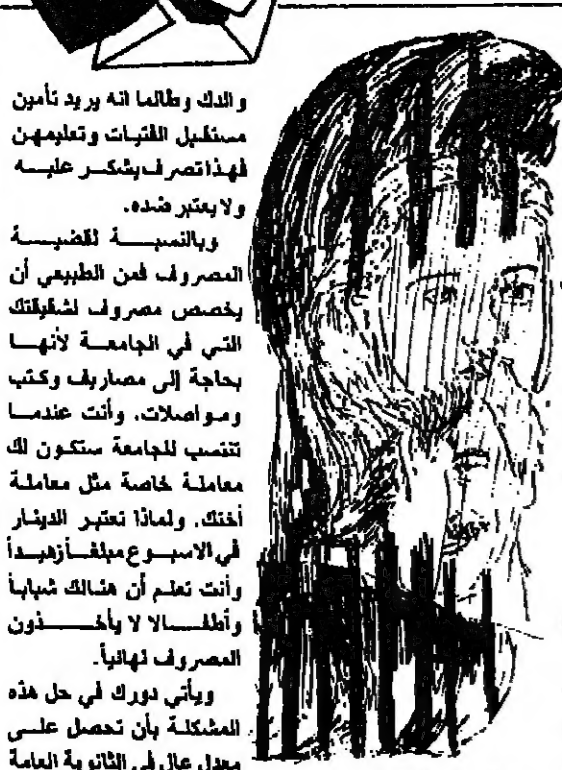 والدك وطالما انه يريد تأمين
مستقبل الفتيات وتعليمهن
فهذا تصرف يشكر عليه
ولا يعتبر ضده.
وبالنسبة لقضية
المصروف فمن الطبيعي أن
يخصص مصروف لشقيقتك
التي في الجامعة لأنها
بحاجة إلى مصاريف وكتب
ومواصلات، وأنت عندما
تنتسب للجامعة ستكون لك
معاملة خاصة مثل معاملة
أختك، ولماذا تعتبر الدينار
في الاسبوع مبلغاً زهيداً
وأنت تعلم أن هنالك شباباً
وأطفالا لا يأخذون
المصروف نهائياً.
ويأتي دورك في حل هذه
المشكلة بأن تحصل على
معدل عال في الثانوية العامة